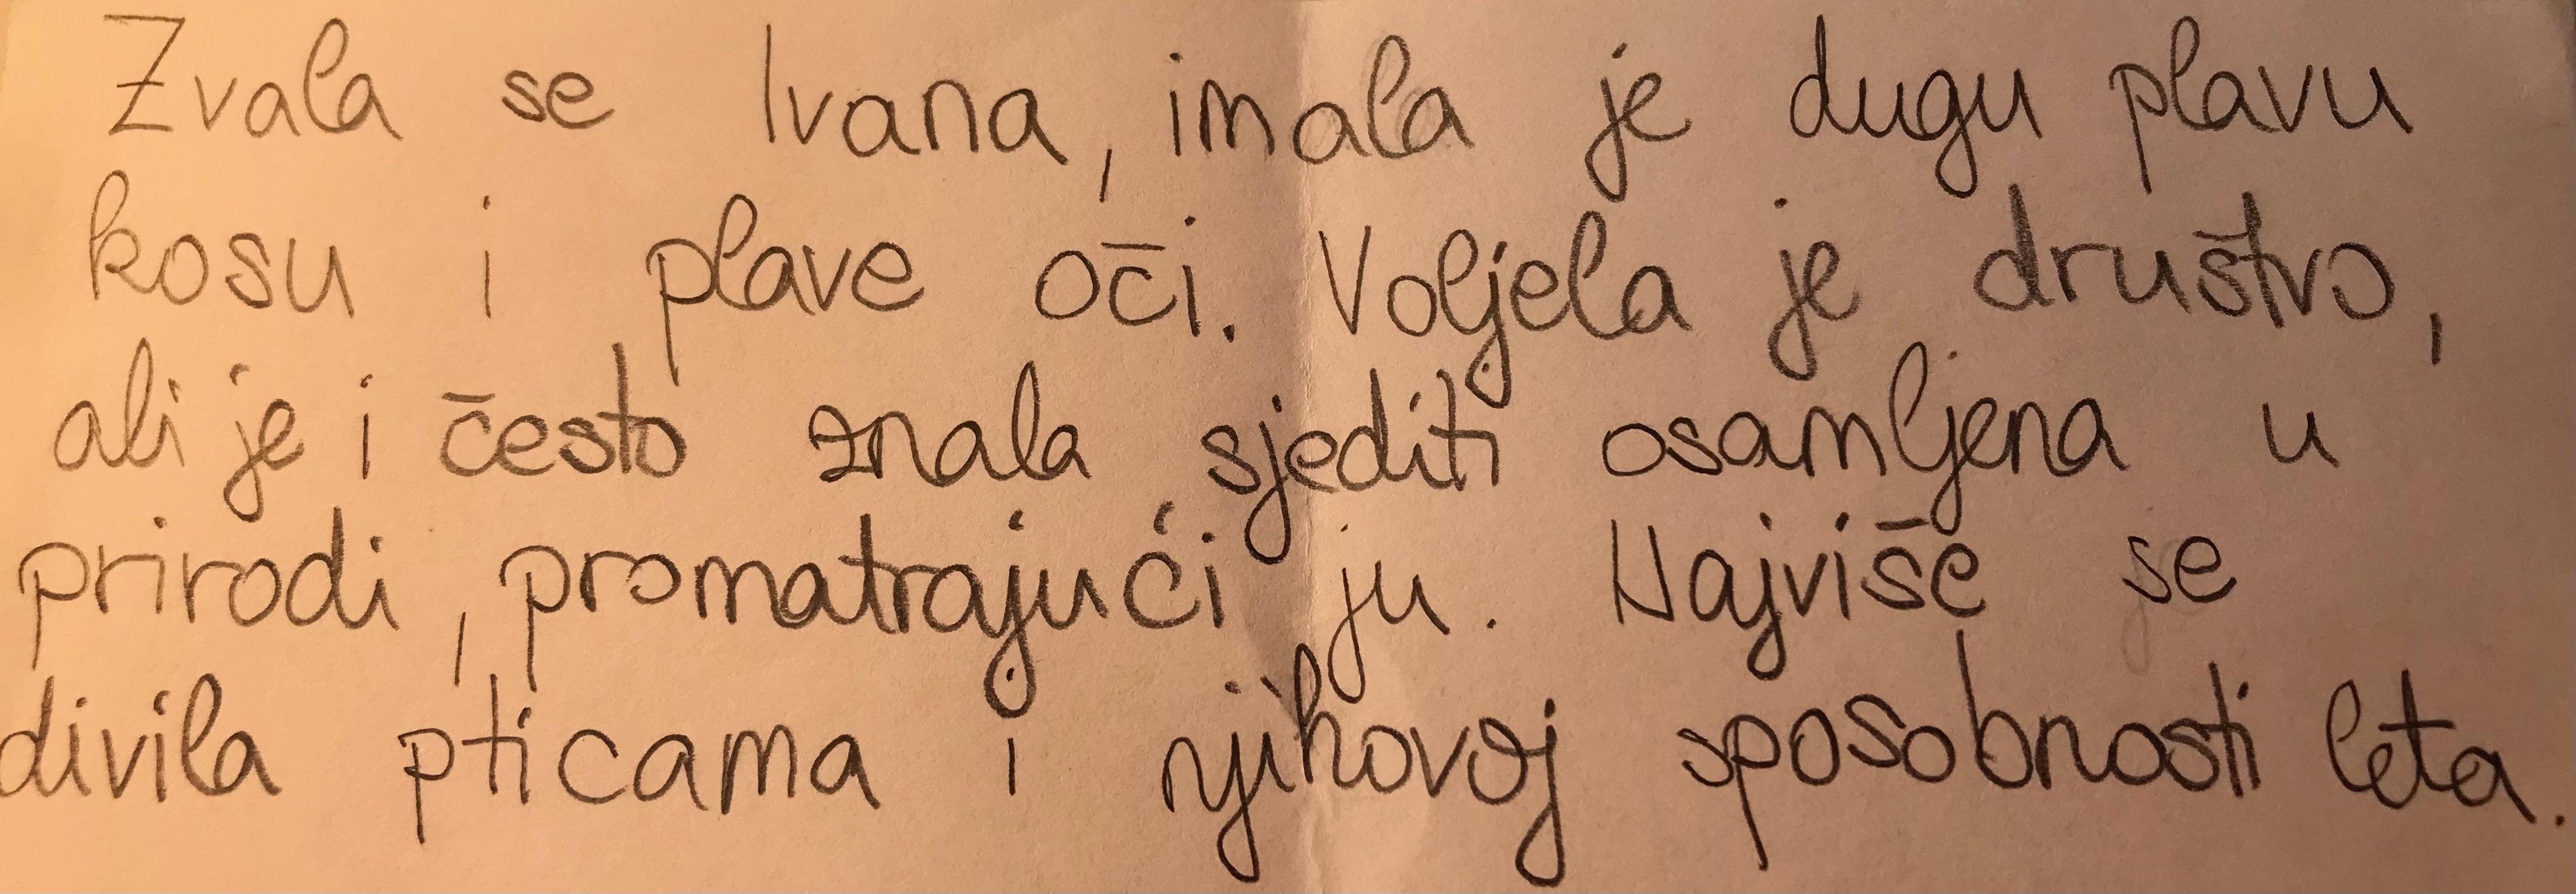 Zvala se Ivana, imala je dugu plavu
kosu i plave oči. Voljela je društvo,
ali je i često znala sjediti osamljena u
prirodi, promatrajući ju. Najviše se
divila pticama i njihovoj sposobnosti leta.